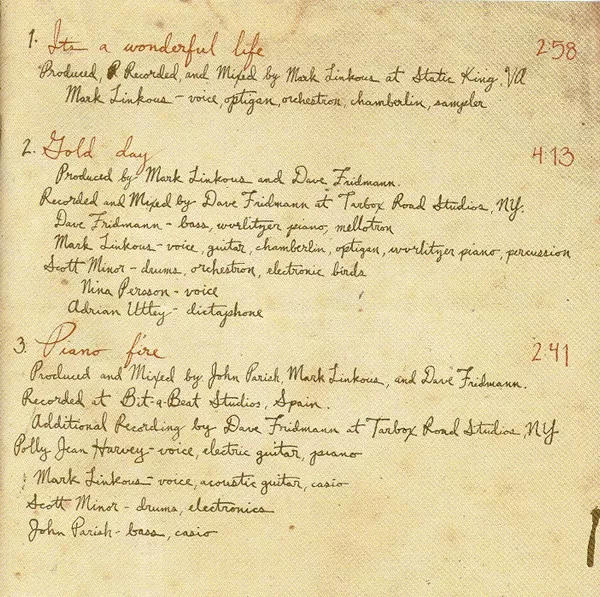 1. Its a wonderful life 2:58
Produced, Recorded, and Mixed by Mark Linkous at Static King, VA
Mark Linkous - voice, optigan, orchestron, chamberlin, sampler
2. Gold day 4:13
Produced by Mark Linkous and Dave Fridmann.
Recorded and Mixed by Dave Fridmann at Tarbox Road Studios, NY.
Dave Fridmann - bass, wurlitzer piano, mellotron
Mark Linkous - voice, guitar, chamberlin, optigan, wurlitzer piano, percussion
Scott Minor - drums, orchestron, electronic birds
Nina Persson - voice
Adrian Uttey - dictaphone
3. Piano fire 2:41
Produced and Mixed by John Parish, Mark Linkous, and Dave Fridmann.
Recorded at Bit-a-Beat Studios, Spain.
Additional Recording by Dave Fridmann at Tarbox Road Studios, NY
Polly Jean Harvey - voice, electric guitar, piano
Mark Linkous - voice, acoustic guitar, casio
Scott Minor - drums, electronics
John Parish - bass, casio